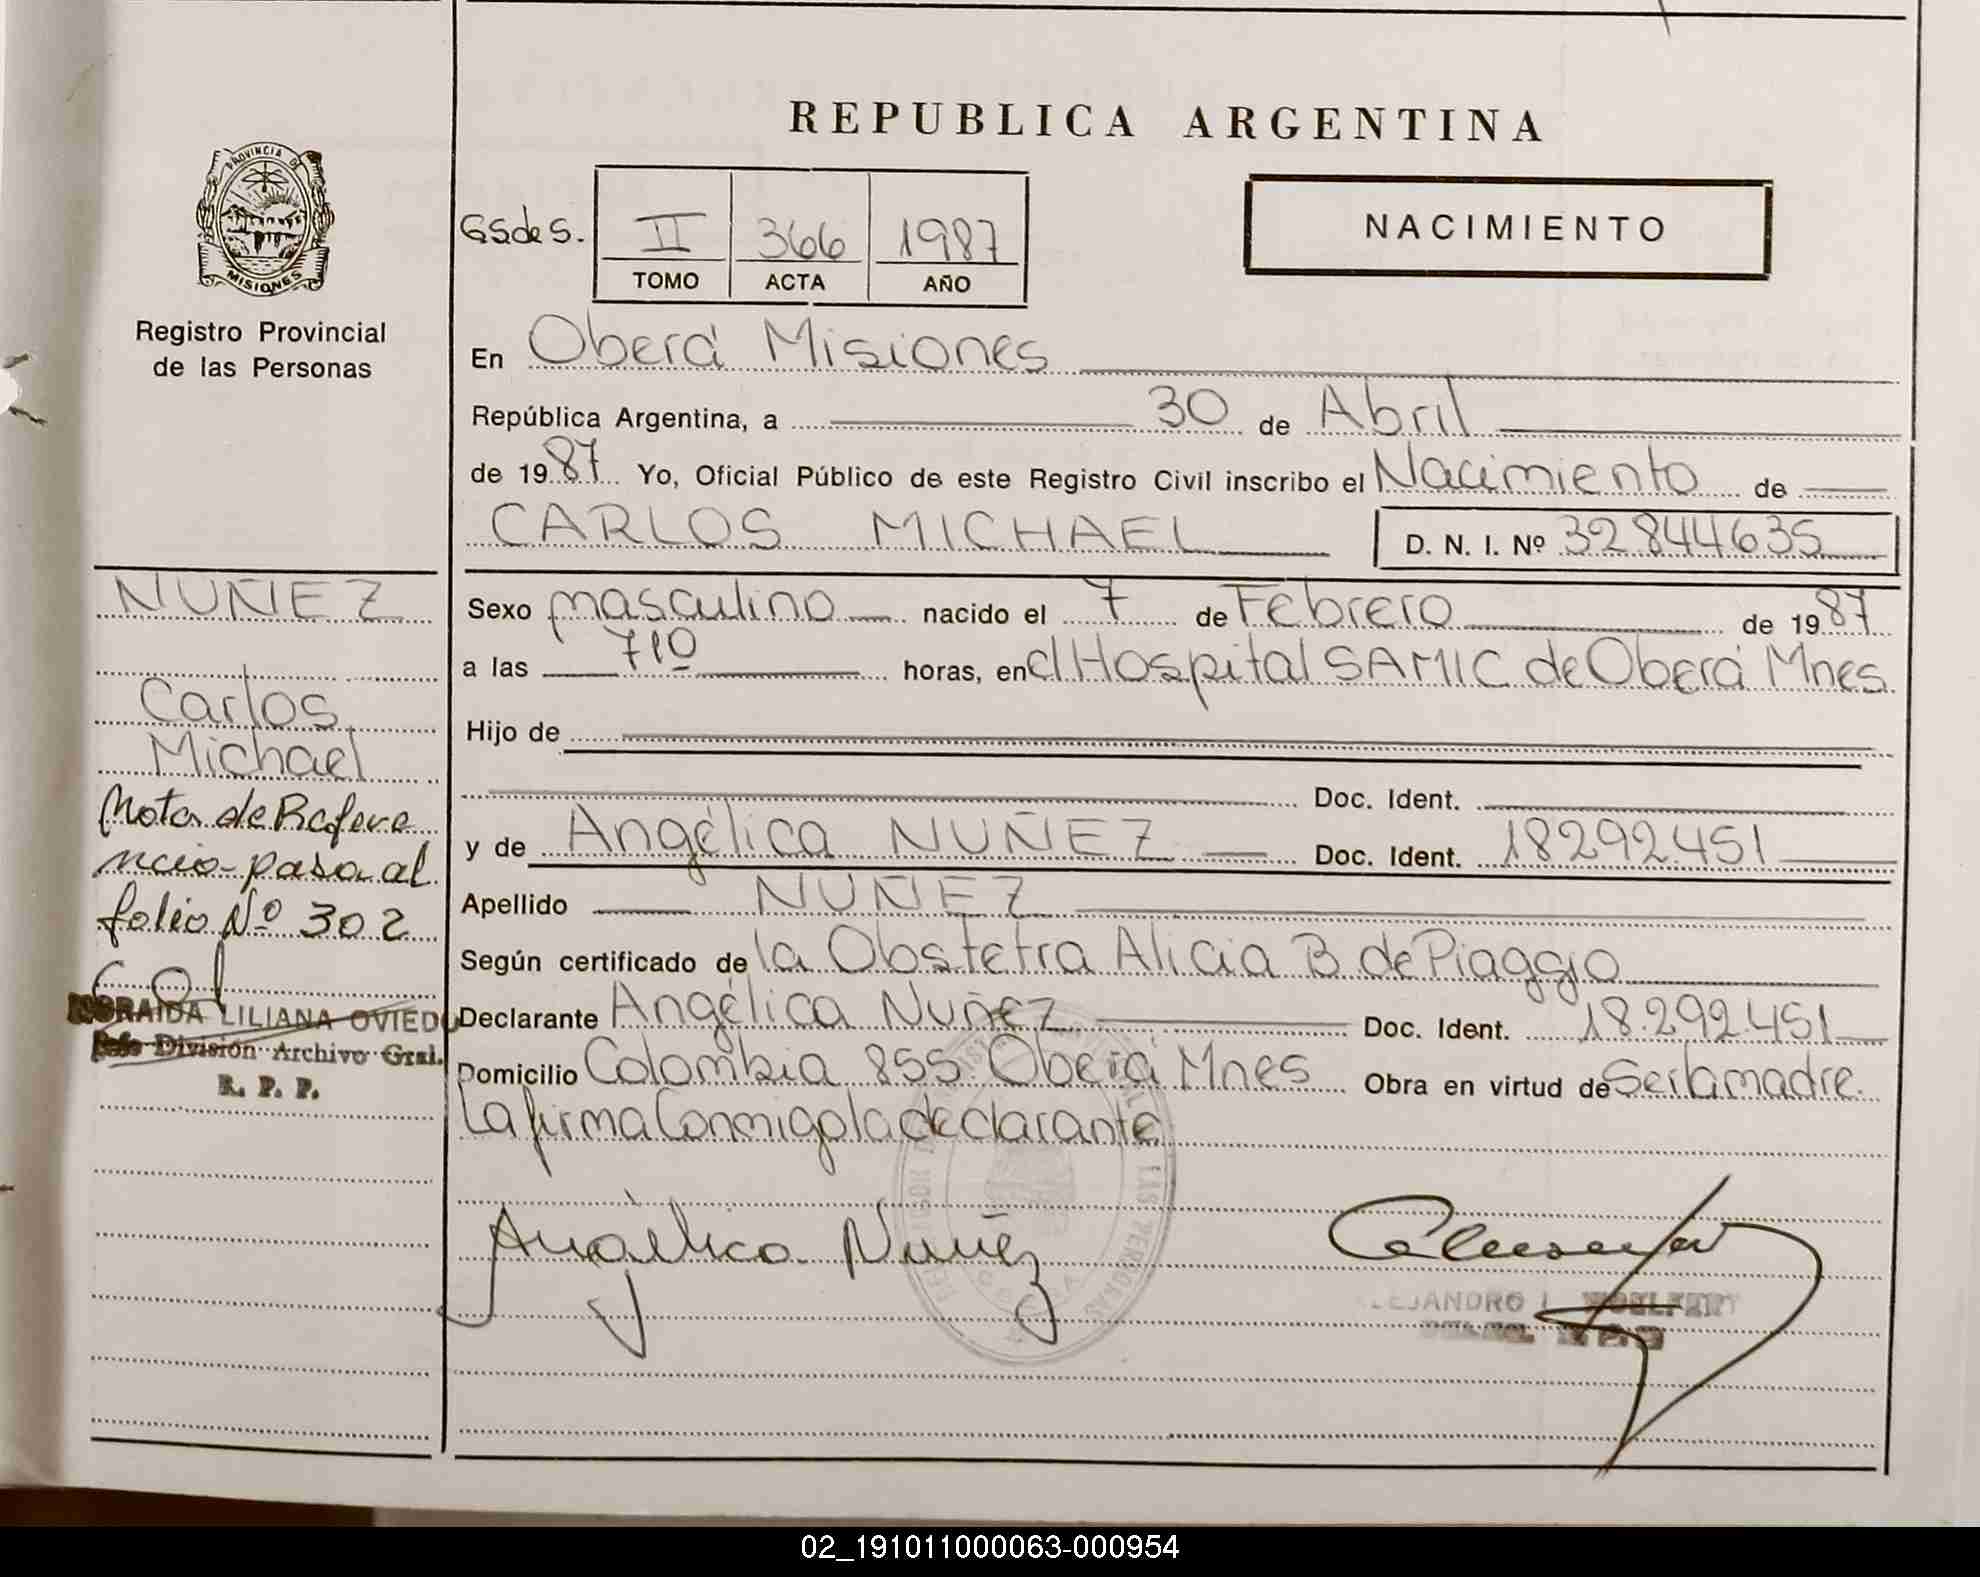 REPUBLICA ARGENTINA
PROVINCIA DE
MISIONES
Registro Provincial
de las Personas
II 366 1987
TOMO ACTA AÑO
NACIMIENTO
En Oberá Misiones
República Argentina, a 30 de Abril
de 1987 Yo, Oficial Público de este Registro Civil inscribo el Nacimiento de
CARLOS MICHAEL D. N. I. Nº 32844635
NUÑEZ
Carlos
Michael
Nota de Refere
ncia-pasa al
folio Nº 302
LILIANA OVIEDO
División Archivo Gral.
R. P. P.
Sexo masculino nacido el 7 de Febrero de 1987
a las 710 horas, en el Hospital SAMIC de Oberá Mnes.
Hijo de
Doc. Ident.
y de Angélica NUÑEZ Doc. Ident. 18292451
Apellido NUÑEZ
Según certificado de la Obstetra Alicia B de Piaggio
Declarante Angélica Nuñez Doc. Ident. 18.292.451
Domicilio Colombia 855 Oberá Mnes Obra en virtud de Ser la madre.
La firma Conmigo la declarante
Angélica Nuñez
02_191011000063-000954